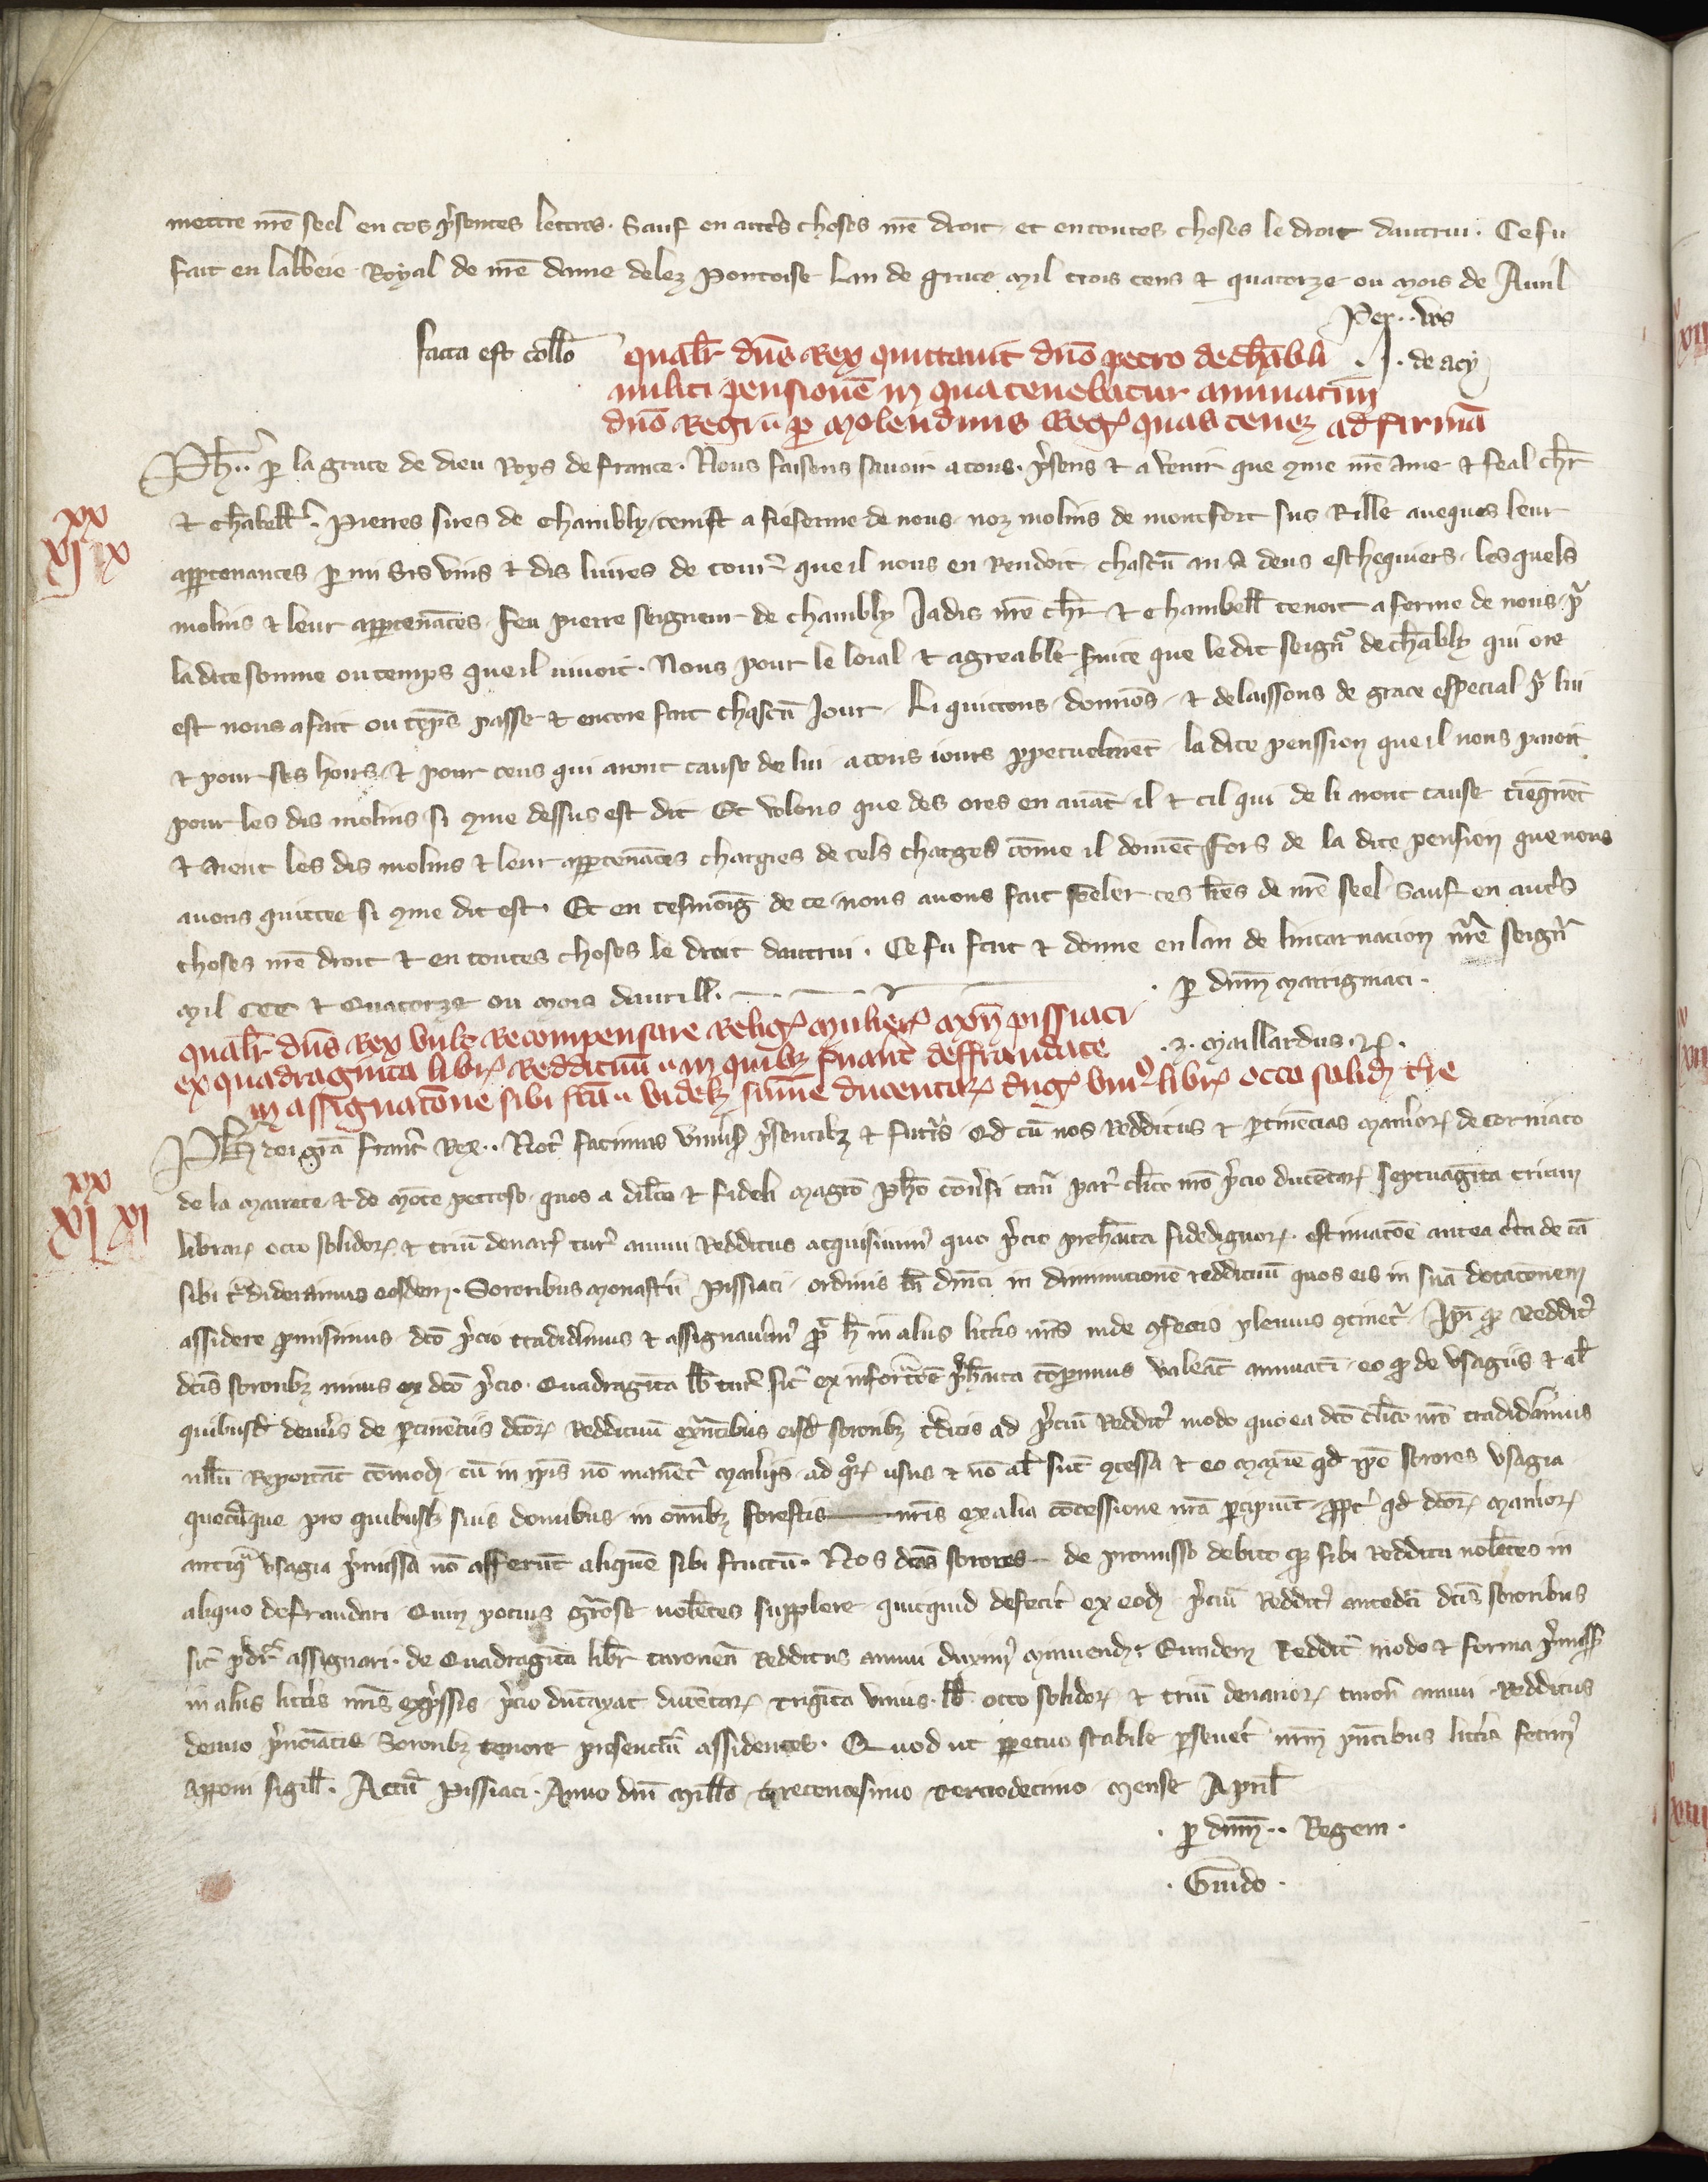 mettre nr̄e seel en ces p̄sentes lettres. Sauf en autr̄s choses nr̄e droit et en toutes choses le droit dautrui. Ce fu
fait en labbeie Royal de nr̄e dame delez Pontoise Lan de grace Mil trois cens et quatorze ou mois de Auril
Per .. vos
facta est coll̄o
J. de acy
qual̄r dn̄s Rex quittauit dn̄o petro de chābli
militi pensionē in qua tenebatur annuatim
dn̄o Regi p̱ molendinis Reg̃ quas tenet ad firmā
Ph̄.. p̱ la grace de dieu Roys de france. Nous faisons sauoir a tous p̄sens et a venir que ꝯme nr̄e ame et feal ch̄r
et ch̄abell̄. Pierres sires de Chambly tenist a fieferme de nous noz molins de montfort sus Rille aueques leur
xx
xj jx x
app̱tenances p̱mi sis vins et dis liures de tour̄ que il nous en Rendoit chascū an a deus eschequiers. les quels
molins et leur app̱tenāces feu pierre seigneur de chambly Jadis nr̄e ch̄r et chambell̄ tenoit a ferme de nous p̄
la dite somme ou temps que il uiuoit. Nous pour le loial et agreable s̄uice que le dit seign̄r de chābly qui ore
est nous a fait ou tēps passe et encore fait chascū Jour. Li quittons donnōs et delaissons de grace especial p̄ lui
et pour ses hoirs et pour ceus qui aront cause de lui a tous iours p̱petuelmēt la dite penssion que il nous paioit
pour les dis molins si ꝯme dessus est dit Et volons que des ores en auāt il et cil qui de li aront cause tiegnēt
et aient les dis molins et leur app̱tenāces chargies de tels charges cōme il doiuēt fors de la dite pension que nous
auons quittee si ꝯme dit est. Et en tesmoīg de ce nous auons fait seeler ces lr̄es de nr̄e seel Sauf en autr̄s
choses nr̄e droit et en toutes choses le droit dautrui. Ce fu fait et donne en lan de lincarnacion nr̄e seign̄r
Mil CCC et Quatorze ou mois dauril̄l.
p̱ dn̄m Marrigniaci.
.J. Maillardus.
qual̄r dn̄s Rex vult Recompensare Relig̃ mulier̃ mon̄ pissiaci
ex quadraginta libr̃ Reddituū in quibꝫ fuarāt deffraudate
in assignatōne sibi fc̄ā videlꝫ sūme ducentaꝝ trig̃ vni9 libr̃ octo solid̃
Ph̄ dei gr̄a franc̄ Rex.. Not̄ facimus vniuẜ p̄sentibꝫ et futur̄s Qd cū nos Redditus et ptinēcias manioꝝ de corniaco
xx
xj jx xj
de la mairete et de mōte petroso quos a dil̄co et fideli magr̄o ph̄o conūsi can̄ par̄ cl̄ico nr̄o p̄cio ducētaꝝ septuagīta trium
libraꝝ octo solidoꝝ et triū denar̃ tur̄ annui Redditus acquisiuim9 quo p̄cio prehāita fidedignoꝝ. estimacōe antea
sibi t̄dideramus eosdem. Sororibus monast̄ij Pissiaci ordinis bt̄i dn̄ici in diminucionē reddituū quos eis in suā dotacōnem
assidere promisimus dc̄o p̄cio tradidim9 et assignauim9 p̄ h̄ in aliis litt̄is nr̄is inde ꝯfectis plenius ꝯtinet̄. Ip̄i qꝫ Reddit9
dc̄is sororibꝫ minus ex dc̄o p̄cio Quadragīta lb̄ tur̄ sic̄ ex informacōe p̄hāita cōp̱imus valeāt annuatī eo qꝫ de vsagiis et al̄
quibusd̄ deuerīs de ptinēciis dc̄oꝝ Reddituū exn̄tibus eisd̄ sororibꝫ t̄ditis ad p̄ciū Reddit9 modo quo ea dc̄o cl̄ico nr̄o tradidim9
null̄ū Reportāt cōmodū. cū in ip̄is nō manēt maneriis ad q̄ꝝ usus et nō al̄ sūt ꝯcessa et eo maxīe qd ip̄e sorores vsagia
quecūque pro quibusꝫ suis domibus in omībꝫ forestis nr̄is ex alia cōcessione nr̄a p̱cipiūt p̱pt̄ qd dc̄oꝝ manioꝝ
antiq̄ vsagia p̄missa nō afferūt aliquē sibi fructū. Nos dc̄as sorores de promisso debito qꝫ sibi Redditu nolētes in
aliquo defraudari Quin pocius gr̄ose uolētes supplere quicquid defecit ex eod̄ p̄ciū Reddit9 antedc̄i dc̄is sororibus
sic̄ p̄dr̄ assignari. de Quadragīta libr̄ turonen̄ Redditus annui duxim9 minuend. Eundem Reddit̄ modo et forma p̄miss̄
in aliis litt̄is nr̄is exp̄ssis p̄cio dūtaxat ducētaꝝ trigīta vnius lb̄ octo solidoꝝ et triū denarioꝝ turon̄ annui Redditus
denuo p̄noīatis Sororibꝫ tenore presenciū assidentes. Quod ut p̱petuo stabile p̱seuēt nr̄m p̄ntibus litt̄is fecim9
apponi sigill̄. Actū Pissiaci. Anno dn̄i mill̄o trecentesimo terciodecimo mense April̄
p̱ dn̄m.. Regem.
. Guido .